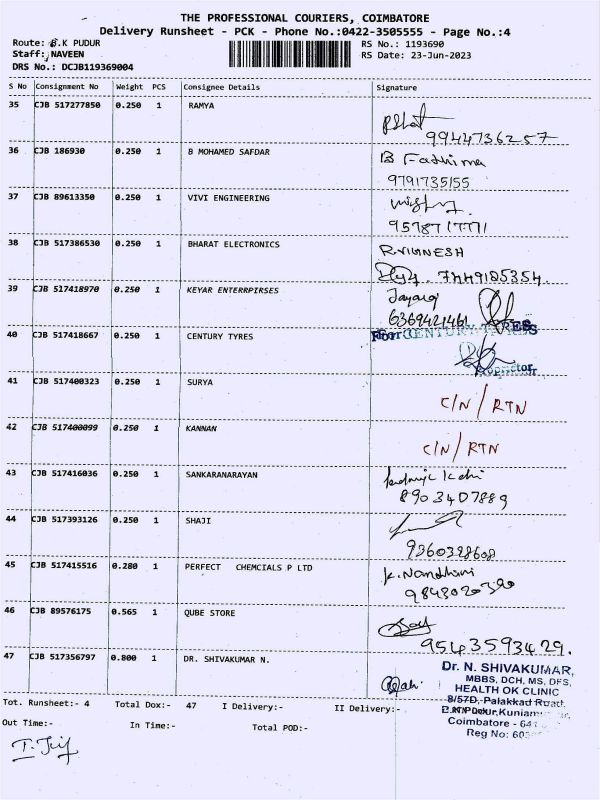 THE PROFESSIONAL COURIERS, COIMBATORE
Delivery Runsheet - PCK - Phone No.:0422-3505555 - Page No.:4
Route: B.K PUDUR
Staff: NAVEEN
DRS No.: DCJB119369004
RS No.: 1193690
RS Date: 23-Jun-2023
S No Consignment No Weight PCS Consignee Details Signature
35 CJB 517277850 0.250 1 RAMYA
9944736257
36 CJB 186930 0.250 1 B MOHAMED SAFDAR B Fathima
9791735155
37 CJB 89613350 0.250 1 VIVI ENGINEERING
9578717771
38 CJB 517386530 0.250 1 BHARAT ELECTRONICS R.VIGNESH
7449185354
39 CJB 517418970 0.250 1 KEYAR ENTERRPIRSES
6369421461
40 CJB 517418667 0.250 1 CENTURY TYRES For CENTURY TYRES
Proprietor
41 CJB 517400323 0.250 1 SURYA C/N / RTN
42 CJB 517400099 0.250 1 KANNAN C/N / RTN
43 CJB 517416036 0.250 1 SANKARANARAYAN
8903407889
44 CJB 517393126 0.250 1 SHAJI
9360328608
45 CJB 517415516 0.280 1 PERFECT CHEMCIALS P LTD K. Nandhini
9843020390
46 CJB 89576175 0.565 1 QUBE STORE
9543593429.
47 CJB 517356797 0.800 1 DR. SHIVAKUMAR N.
Dr. N. SHIVAKUMAR,
MBBS, DCH, MS, DFS,
HEALTH OK CLINIC
8/57D, Palakkad Road,
Coimbatore - 641
Reg No: 603
Tot. Runsheet:- 4 Total Dox:- 47 I Delivery:- II Delivery:-
Out Time:- In Time:- Total POD:-